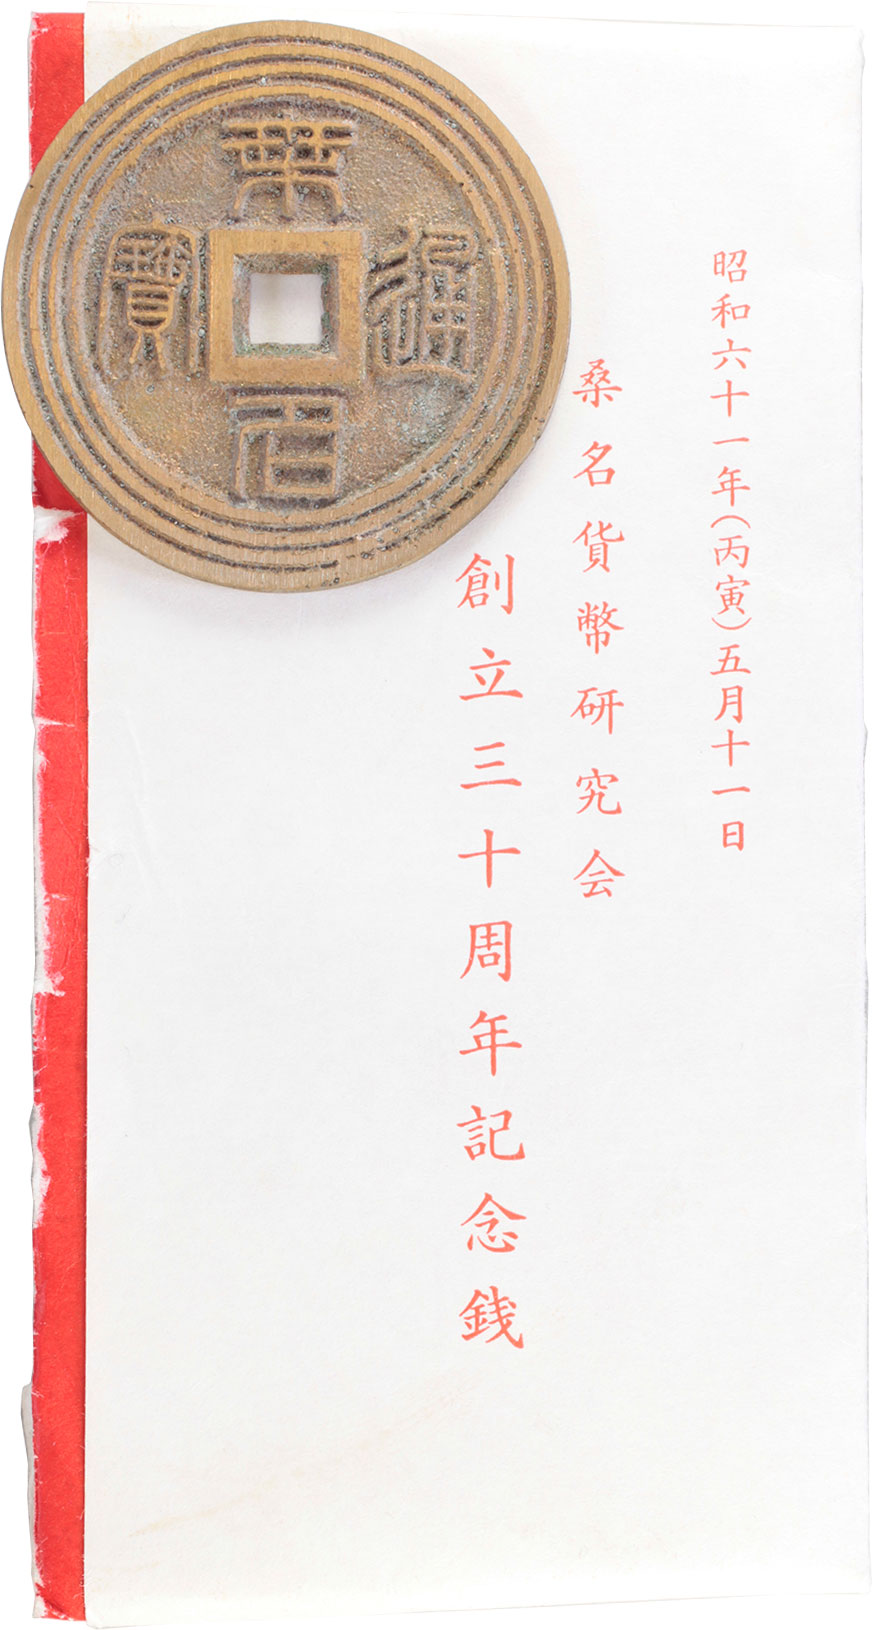 昭和六十一年（丙寅）五月十一日
桑名貨幣研究会
創立三十周年記念銭
桑名通寳